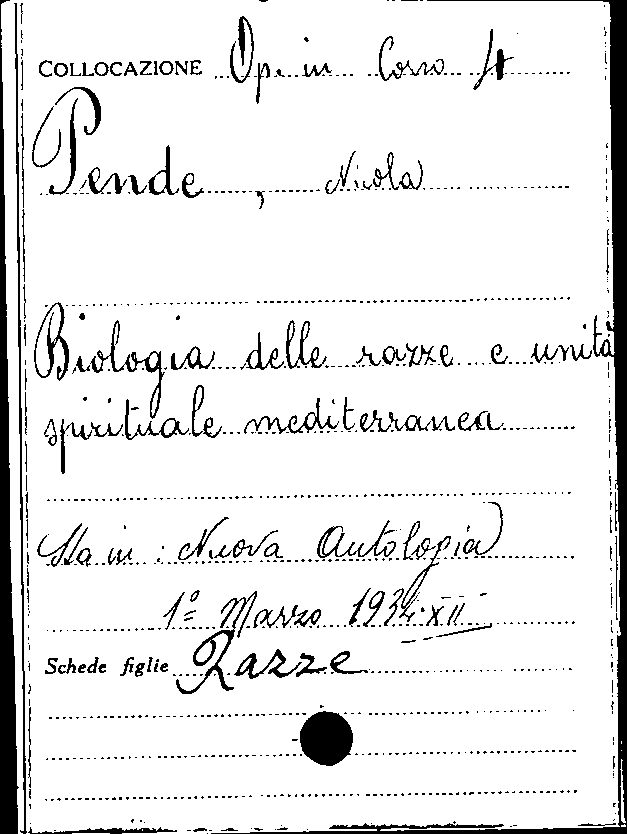 COLLOCAZIONE Op. in Corso 4
Pende, Nicola
Biologia delle razze e unità
spirituale mediterranea
Sta in: Nuova Autologia
1º Marzo 1934-XII
Schede figlie Razze